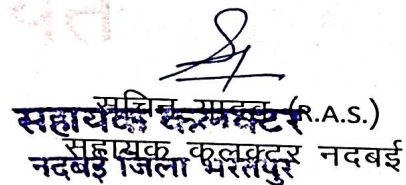 सचिन यादव (R.A.S.)
सहायक कलक्टर
सहायक कलक्टर नदबई
नदबई जिला भरतपुर